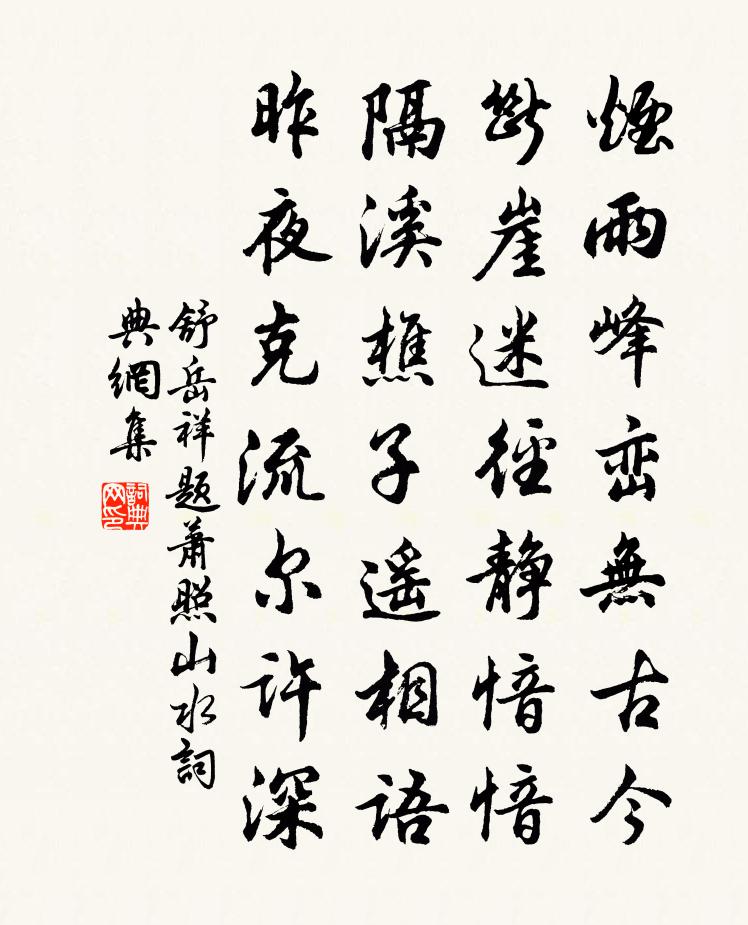 煙雨峰巒無古今
斷崖迷徑静愔愔
隔溪樵子遥相語
昨夜克流尔許深
舒岳祥題蕭照山水詞
典網集
詞典
网印